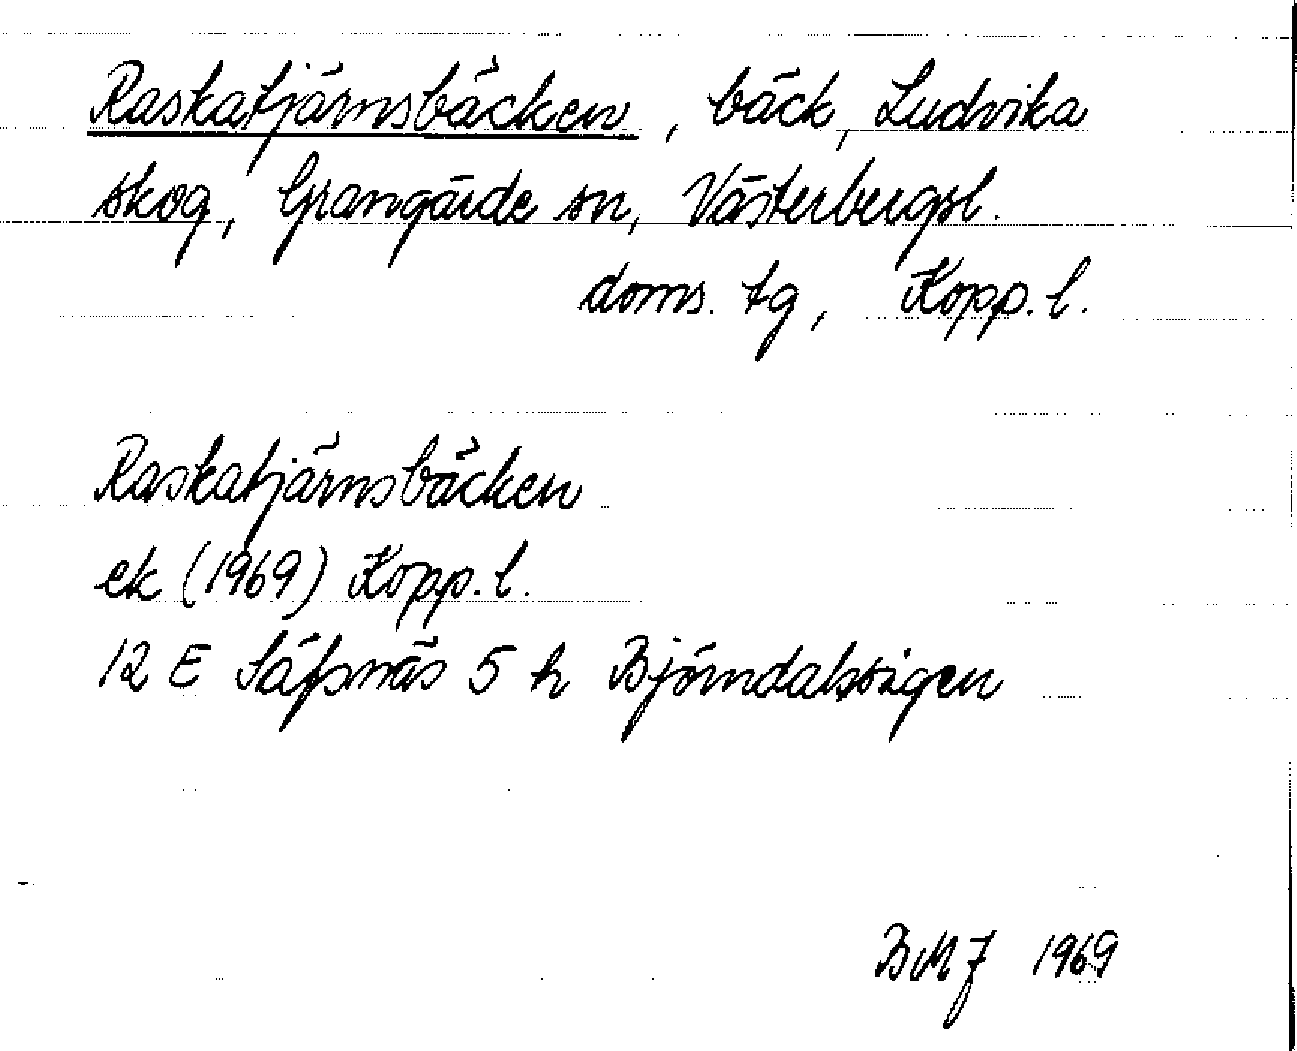 Raskatjärnsbäcken, bäck, Ludvika
skog, Grangärde sn, Västerbergsl.
doms. tg, Kopp. l.
Raskatjärnsbäcken
ek (1969) Kopp. l.
12 E Säfsnäs 5 h Björndalstigen
BMJ 1969